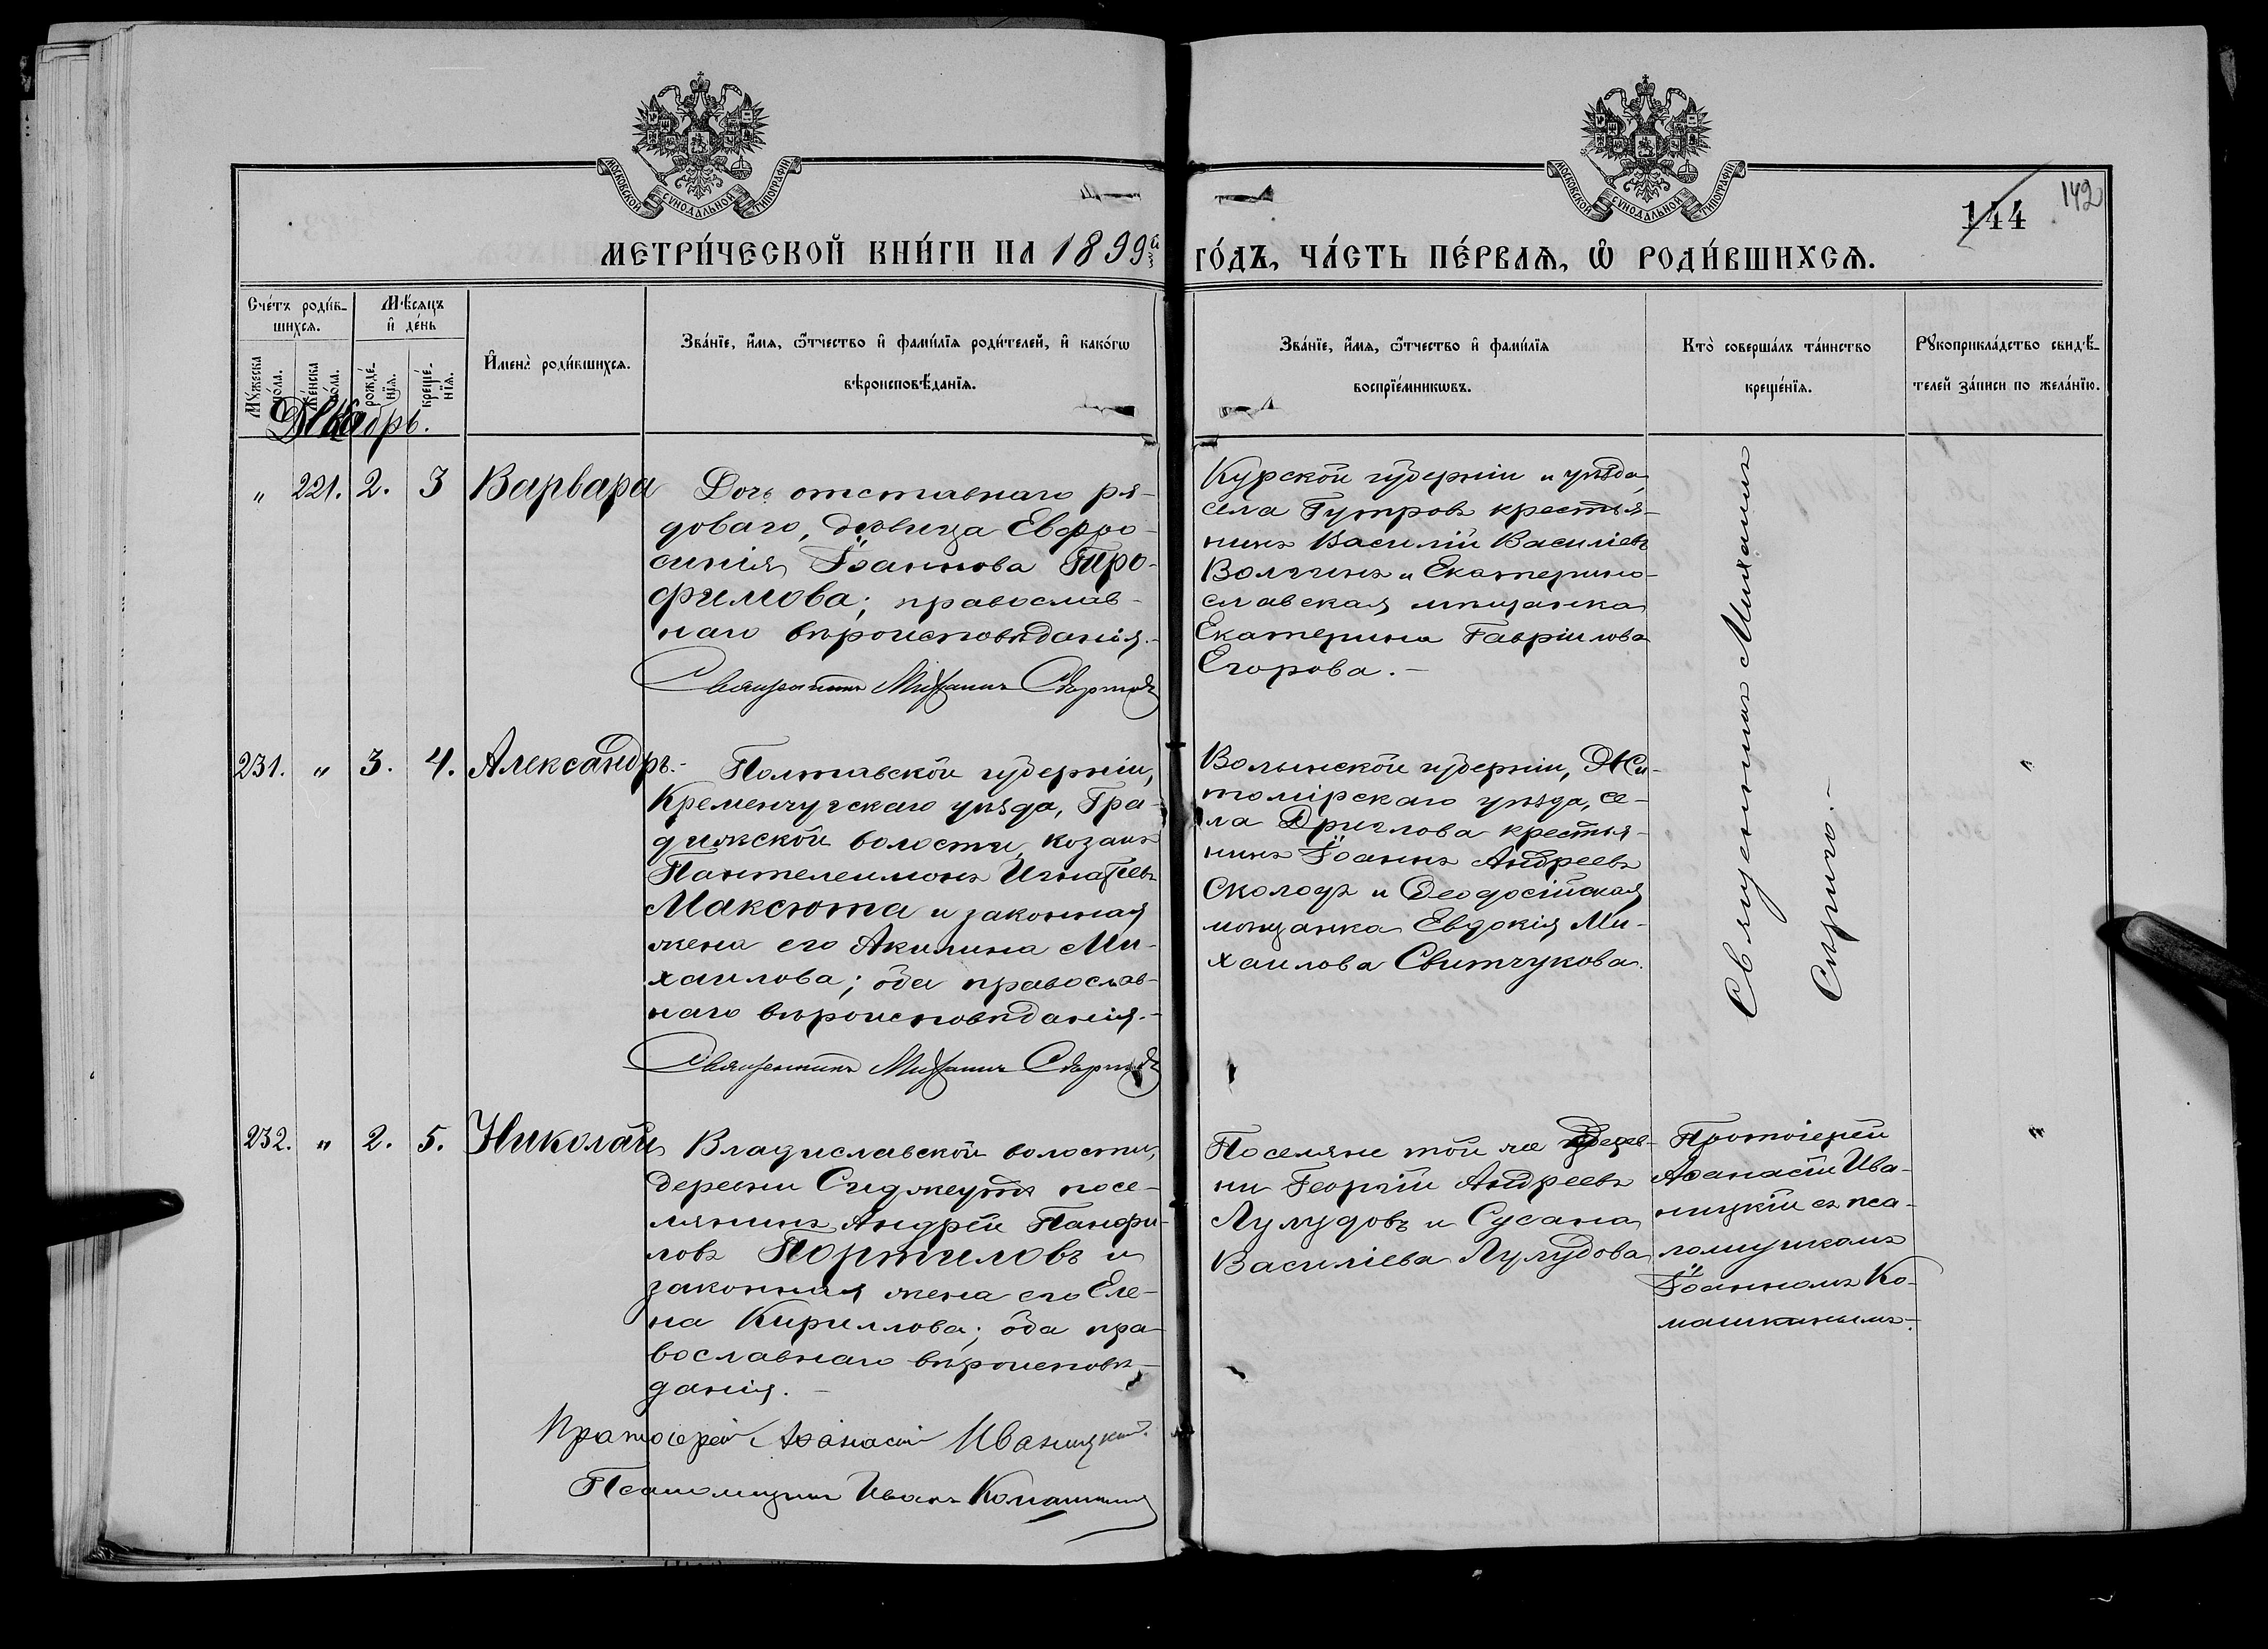 МОСКОВСКОЙ СѴНОДАЛЬНОЙ ТИПОГРАФІИ
МОСКОВСКОЙ СѴНОДАЛЬНОЙ ТИПОГРАФІИ
144 142
МЕТРИ́ЧЕСКОЙ КНИ́ГИ НА 1899й ГО́ДЪ, ЧА́СТЬ ПЕ́РВАѦ, Ѡ РОДИ́ВШИХСѦ.
Сче́тъ роди́в-
шихсѧ.
Мꙋ́жеска по́ла.
Же́нска по́ла.
Мѣ́сяцъ
и҆ де́нь
рожде́-
нїѧ.
креще́-
нїѧ.
И҆мена̀ роди́вшихсѧ.
Зва́нїе, и҆́мѧ, ѻ҆́тчество и҆ фами́лїѧ роди́телей, и҆ како́гѡ
вѣроисповѣ́данїѧ.
Зва́нїе, и҆́мѧ, ѻ҆́тчество и҆ фами́лїѧ
воспрїе́мникѡвъ.
Кто̀ соверша́лъ та́инство
креще́нїѧ.
Рꙋкоприкла́дство свидѣ́-
телей за́писи по жела́нїю.
Декабрь.
" 221. 2. 3 Варвара
Дочь отставнаго ря-
доваго, дѣвица Евфро-
синія Іоаннова Тро-
фимова; православ-
наго вѣроисповѣданія.-
Священникъ Михаилъ
Курской губерніи и уѣзда,
села крестья-
нинъ Василій Василіевъ
Волчинъ и Екатерино-
славская мѣщанка
Екатерина Гавріилова
Егорова.-
Священникъ Михаилъ
231. " 3. 4. Александръ.-
Полтавской губерніи,
Кременчугскаго уѣзда, Гра-
дижской волости, козакъ
Пантелеимонъ Игнатіевъ
Максюта и законная
жена его Акилина Ми-
хаилова; оба православ-
наго вѣроисповѣданія.-
Священникъ Михаилъ
Волынской губерніи, Жи-
томірскаго уѣзда, се-
ла крестья-
нинъ Іоаннъ Андреевъ
и Ѳеодосійская
мѣщанка Евдокія Ми-
хаилова Свитчукова.
"
232. " 2. 5. Николай
Владиславской волости,
деревни Сиджеутъ посе-
лянинъ Андрей Панфи-
ловъ Портиловъ и
законная жена его Еле-
на Кириллова; оба пра-
вославнаго вѣроисповѣ-
данія.-
Протоіерей Аѳанасій Иваницкій.
Псаломщикъ Иванъ Комашкинъ
Поселяне той же дерев-
ни Георгій Андреевъ
Лулудовъ и Сусана
Василіева Лулудова
Протоіерей
Аѳанасій Ива-
ницкій съ пса-
ломщикомъ
Іоанномъ Ко-
машкинымъ.
"